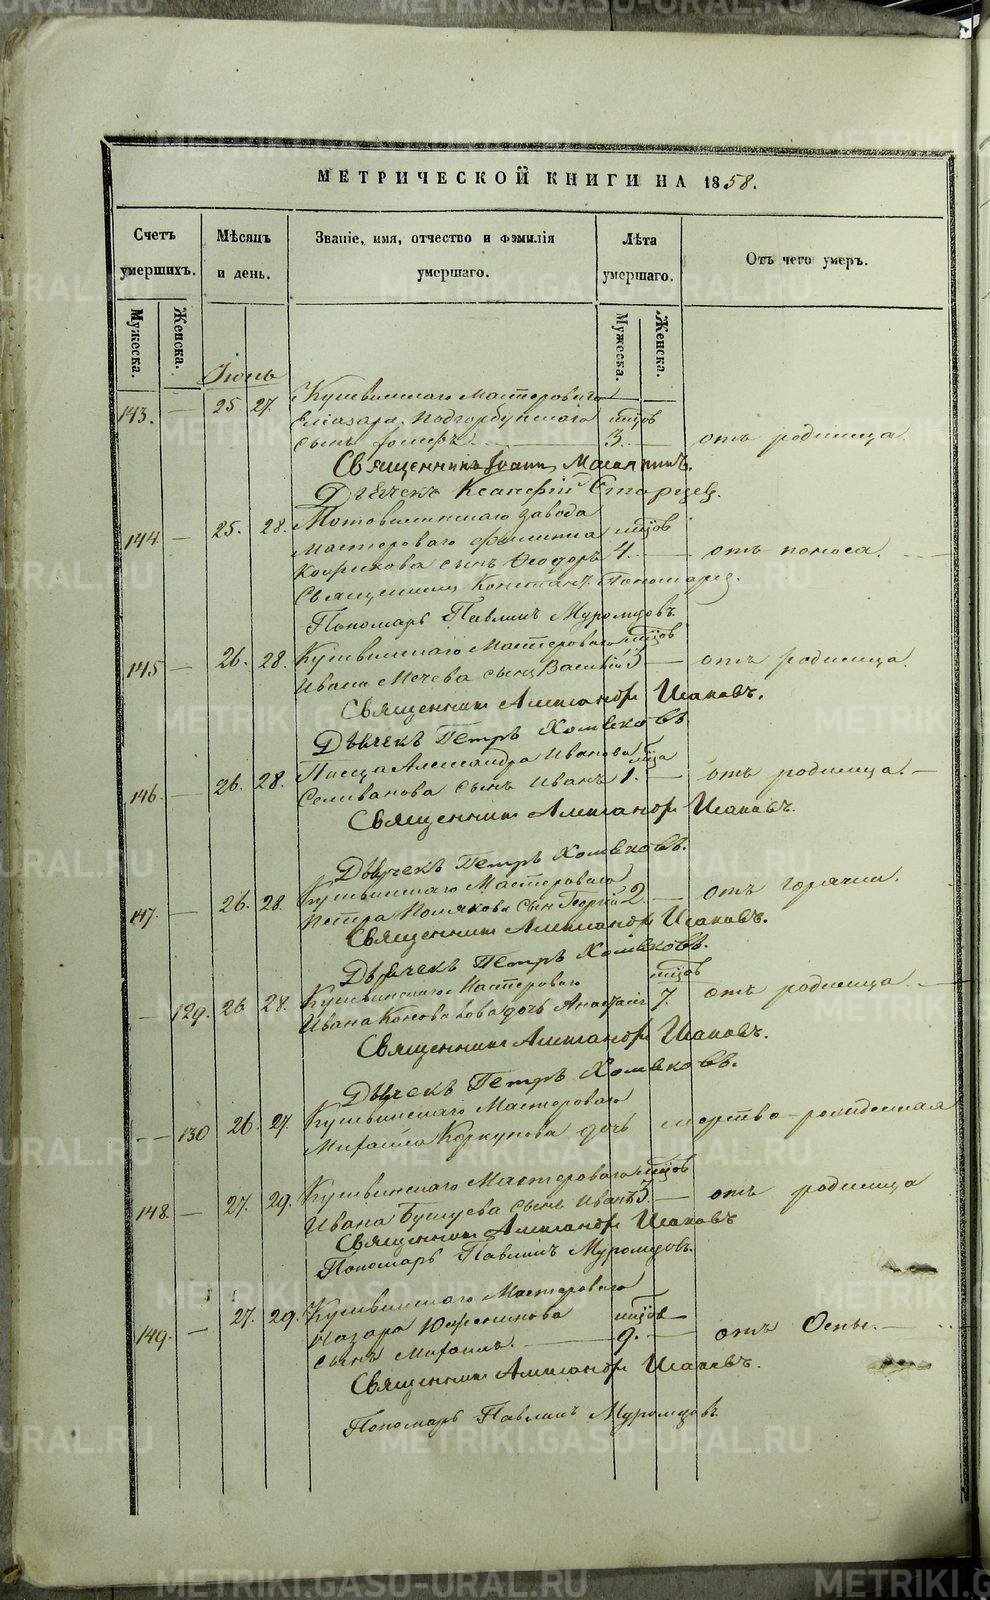 МЕТРИЧЕСКОЙ КНИГИ НА 1858.
Счетъ умершихъ.
Мѣсяцъ и день.
Званіе, имя, отчество и фамилія умершаго.
Лѣта умершаго.
Отъ чего умеръ.
Мужеска.
Женска.
Мужеска.
Женска.
Іюнь
Кушвинскаго Мастероваго
143. — 25 27. Еліазара Подгорбунскаго мцов
сынъ 3. — отъ родимца.
Священникъ Іоаннъ
Дьячекъ Ксанфій Старцев.
Мотовилинскаго завода
144. — 25. 28. Мастероваго Филиппа мцов
сынъ Ѳеодоръ 4. — отъ поноса.
Священникъ Констант. Пономарев.
Пономарь Павлинъ Муромцовъ.
145 — 26. 28. Кушвинскаго Мастероваго мцов
Ивана сынъ Василій 3 — отъ родимца.
Священникъ Александръ Исаковъ.
Дьячекъ Петръ Хомяковъ
146. — 26. 28. Писца Александра Иванова мца
Селиванова сынъ Иванъ 1. — отъ родимца. —
Священникъ Александръ Исаковъ.
Дьячекъ Петръ Хомяковъ.
Кушвинскаго Мастероваго
147. — 26. 28. Петра Полякова сынъ Георгій 2. — отъ горячки.
Священникъ Александръ Исаковъ.
Дьячекъ Петръ Хомяковъ.
Кушвинскаго Мастероваго мцов
— 129. 26 28. Ивана Коновалова дочь Анастасія 7. отъ родимца. —
Священникъ Александръ Исаковъ.
Дьячекъ Петръ Хомяковъ.
Кушвинскаго Мастероваго
— 130 26. 27. Михаила Коркунова дочь мертво-рожденная
Кушвинскаго Мастероваго мцов
148. — 27. 29. Ивана сынъ Иванъ 3. — отъ родимца
Священникъ Александръ Исаковъ
Пономарь Павлинъ Муромцовъ.
Кушвинскаго Мастероваго
149. — 27. 29. Назара мцов
сынъ Михаилъ. — 9. — отъ Оспы. —
Священникъ Александръ Исаковъ.
Пономарь Павлинъ Муромцовъ.
METRIKI.GASO-URAL.RU